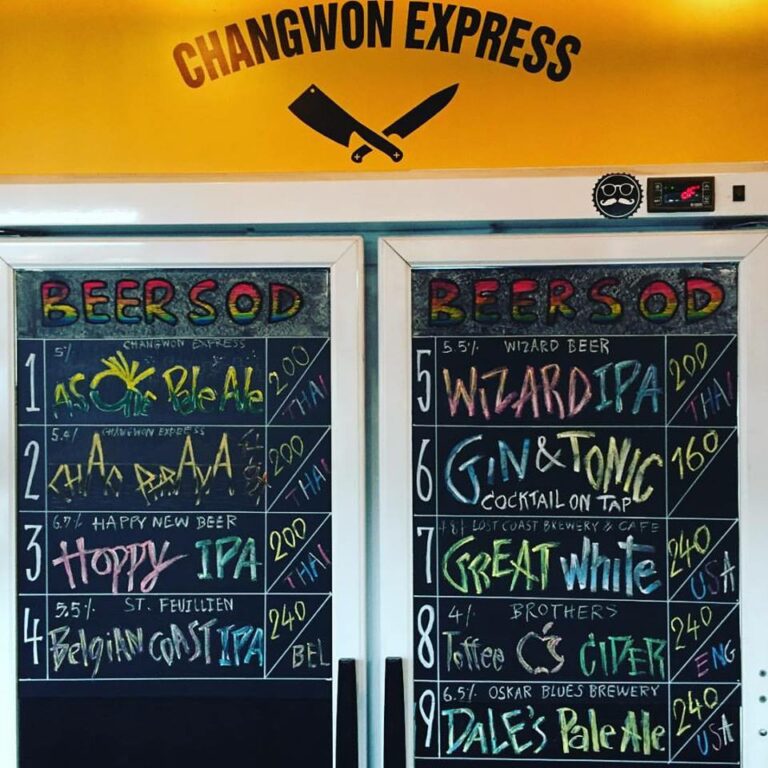 CHANGWON EXPRESS
BEERS OD
1
5% CHANGWON EXPRESS
ASOKE Pale Ale
200
THAI
2
5.4% CHANGWON EXPRESS
CHAO PHRAYA
200
THAI
3
6.7% HAPPY NEW BEER
HOPPY IPA
200
THAI
4
5.5% ST. FEUILLIEN
BELGIAN COAST IPA
240
BEL
BEERS OD
5
5.5% WIZARD BEER
WIZARD IPA
200
THAI
6
GIN & TONIC
COCKTAIL ON TAP
160
7
4.8% LOST COAST BREWERY & CAFE
GREAT White
240
USA
8
4% BROTHERS
Toffee CIDER
240
ENG
9
6.5% OSKAR BLUES BREWERY
DALE'S Pale Ale
240
USA